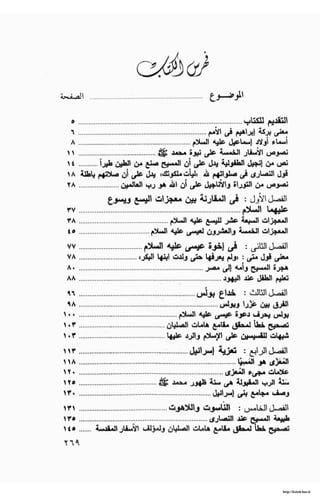 فهرس الكتاب
الموضوع ........ الصفحة
التقديم للكتاب ........ ٥
معنى بركة إبراهيم فى الأمم ........ ٦
أسماء أولاد إسماعيل عليه السلام ........ ٨
نصوص الأسفار الخمسة على نبوة محمد ﷺ ........ ١١
نص من إنجيل الطفولية يدل على أن المسيح صنع من الطين طيراً ........ ١٤
قول النصارى فى صلواتهم لله «ليأت ملكوتك» يدل على أن صلاتهم باطلة ١٨
نصوص من التوراة والأناجيل على أن الله هو رب العالمين ........ ٢٨
الفصل الأول : فى المقارنة بين معجزات اليسع ويسوع
عليهما السلام ........ ٣٧
المعجزات السبعة عشر لليسع عليه السلام ........ ٣٨
المعجزات الخمسة والعشرون لعيسى عليه السلام ........ ٤٥
الفصل الثانى : فى إخوة عيسى عليه السلام ........ ٧٧
معنى قول متى : «ولم يعرفها حتى ولدت ابنها البكر» ........ ٧٨
هجرة المسيح وأمه إلى مصر ........ ٨٠
تعليم الطفل عند اليهود ........ ٨٨
الفصل الثالث : خداع بولس ........ ٩٦
الفرق بين عزرا وبولس ........ ٩٨
بولس يحرف دعوة عيسى عليه السلام ........ ١٠٠
تصحيح خطأ لمحقق مقامع هامات الصلبان ........ ١٠٣
شبهات للقسيسين على الإسلام والرد عليها ........ ١٠٣
الفصل الرابع : تعزية إسرائيل ........ ١١٣
المُعَزِّى هو المَسِيَّا ........ ١١٨
علامات مجىء المُعزى ........ ١٢٠
سنة الرب المقبولة هى سنة ظهور محمد ﷺ ........ ١٢٥
وصف مجامع بنى إسرائيل ........ ١٣٠
الفصل الخامس : الناسوت واللاهوت ........ ١٣١
طبيعة المسيح عند النصارى ........ ١٣٥
تصحيح خطأ لمحقق مقامع هامات الصلبان ولمؤلف الأسفار المقدسة ........ ١٤٥
٢٦٩